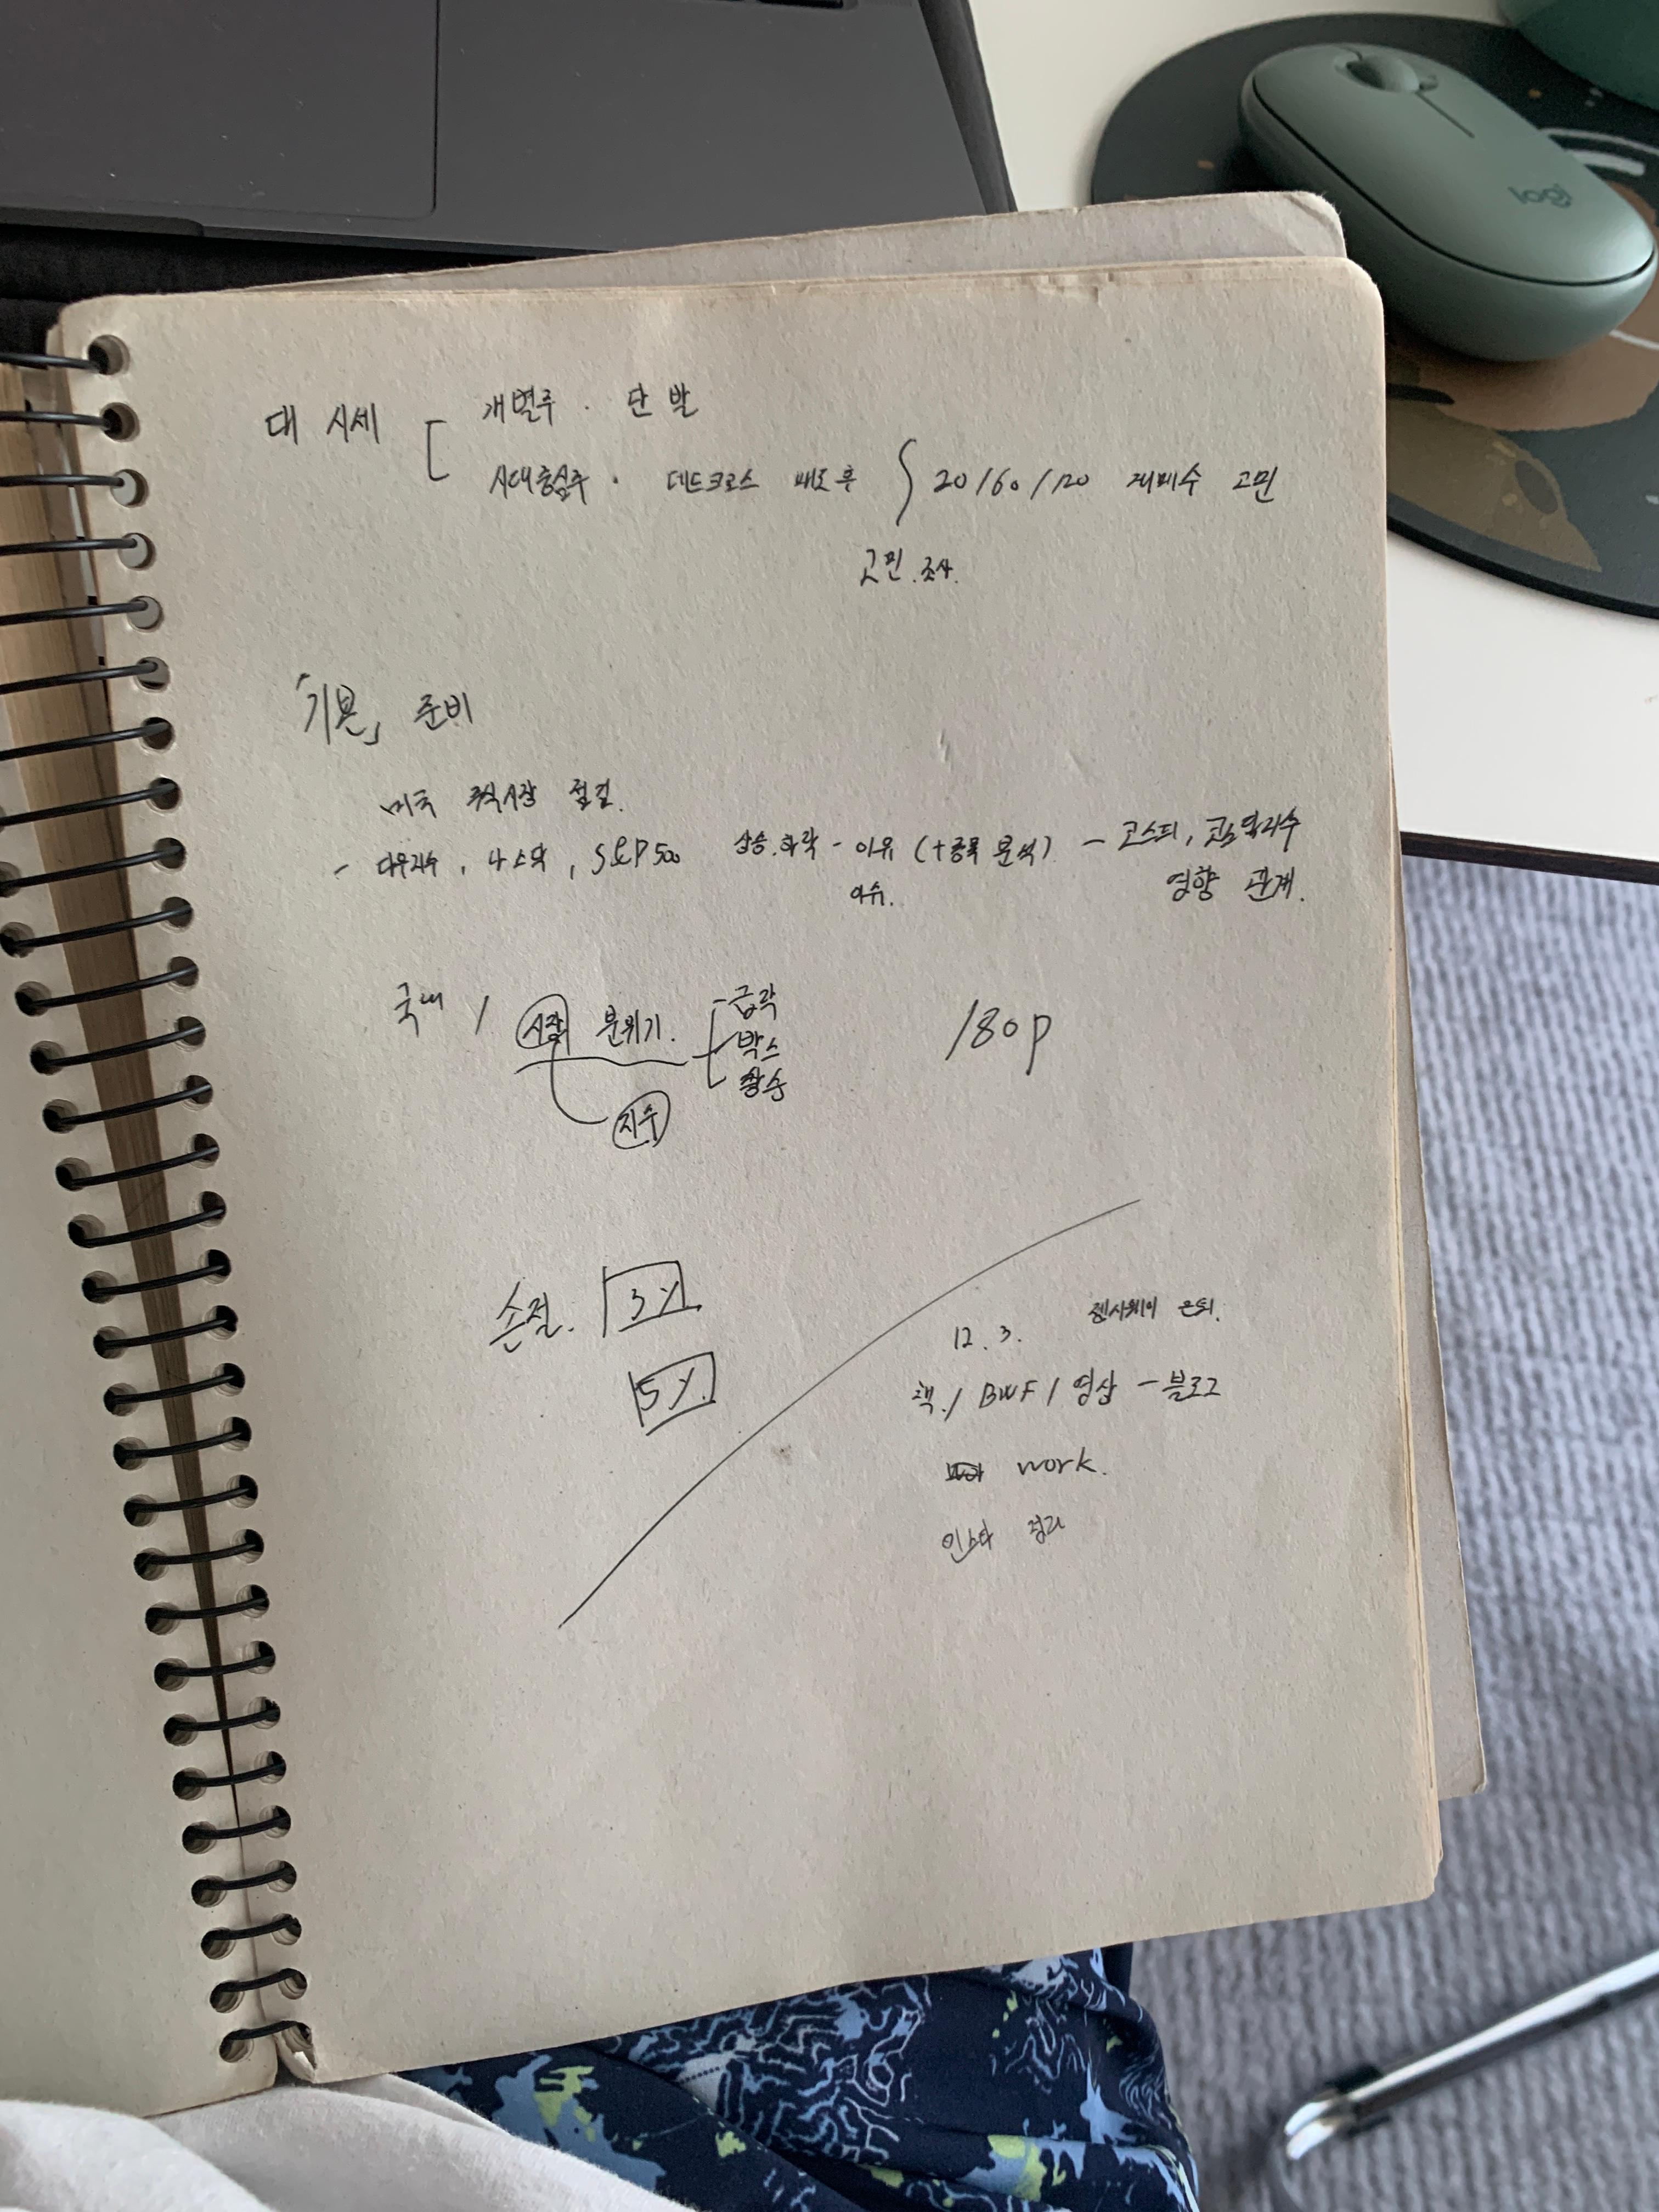 logi
대 시세
개별주 · 단발
시대중심주 · 데드크로스 매도 후 20/60/120 재매수 고민
고민. 조사.
「기본」 준비
미국 주식시장 점검.
- 다우지수, 나스닥, S&P500 상승.하락 - 이유 (+종목 분석) - 코스피, 코스닥지수
이슈. 영향 관계.
국내 / 시장 분위기.
급락
박스
상승
지수
180p
손절. 3%
5%
12. 3. 은퇴.
책./ BWF / 영상 - 블로그
work.
인스타 정리